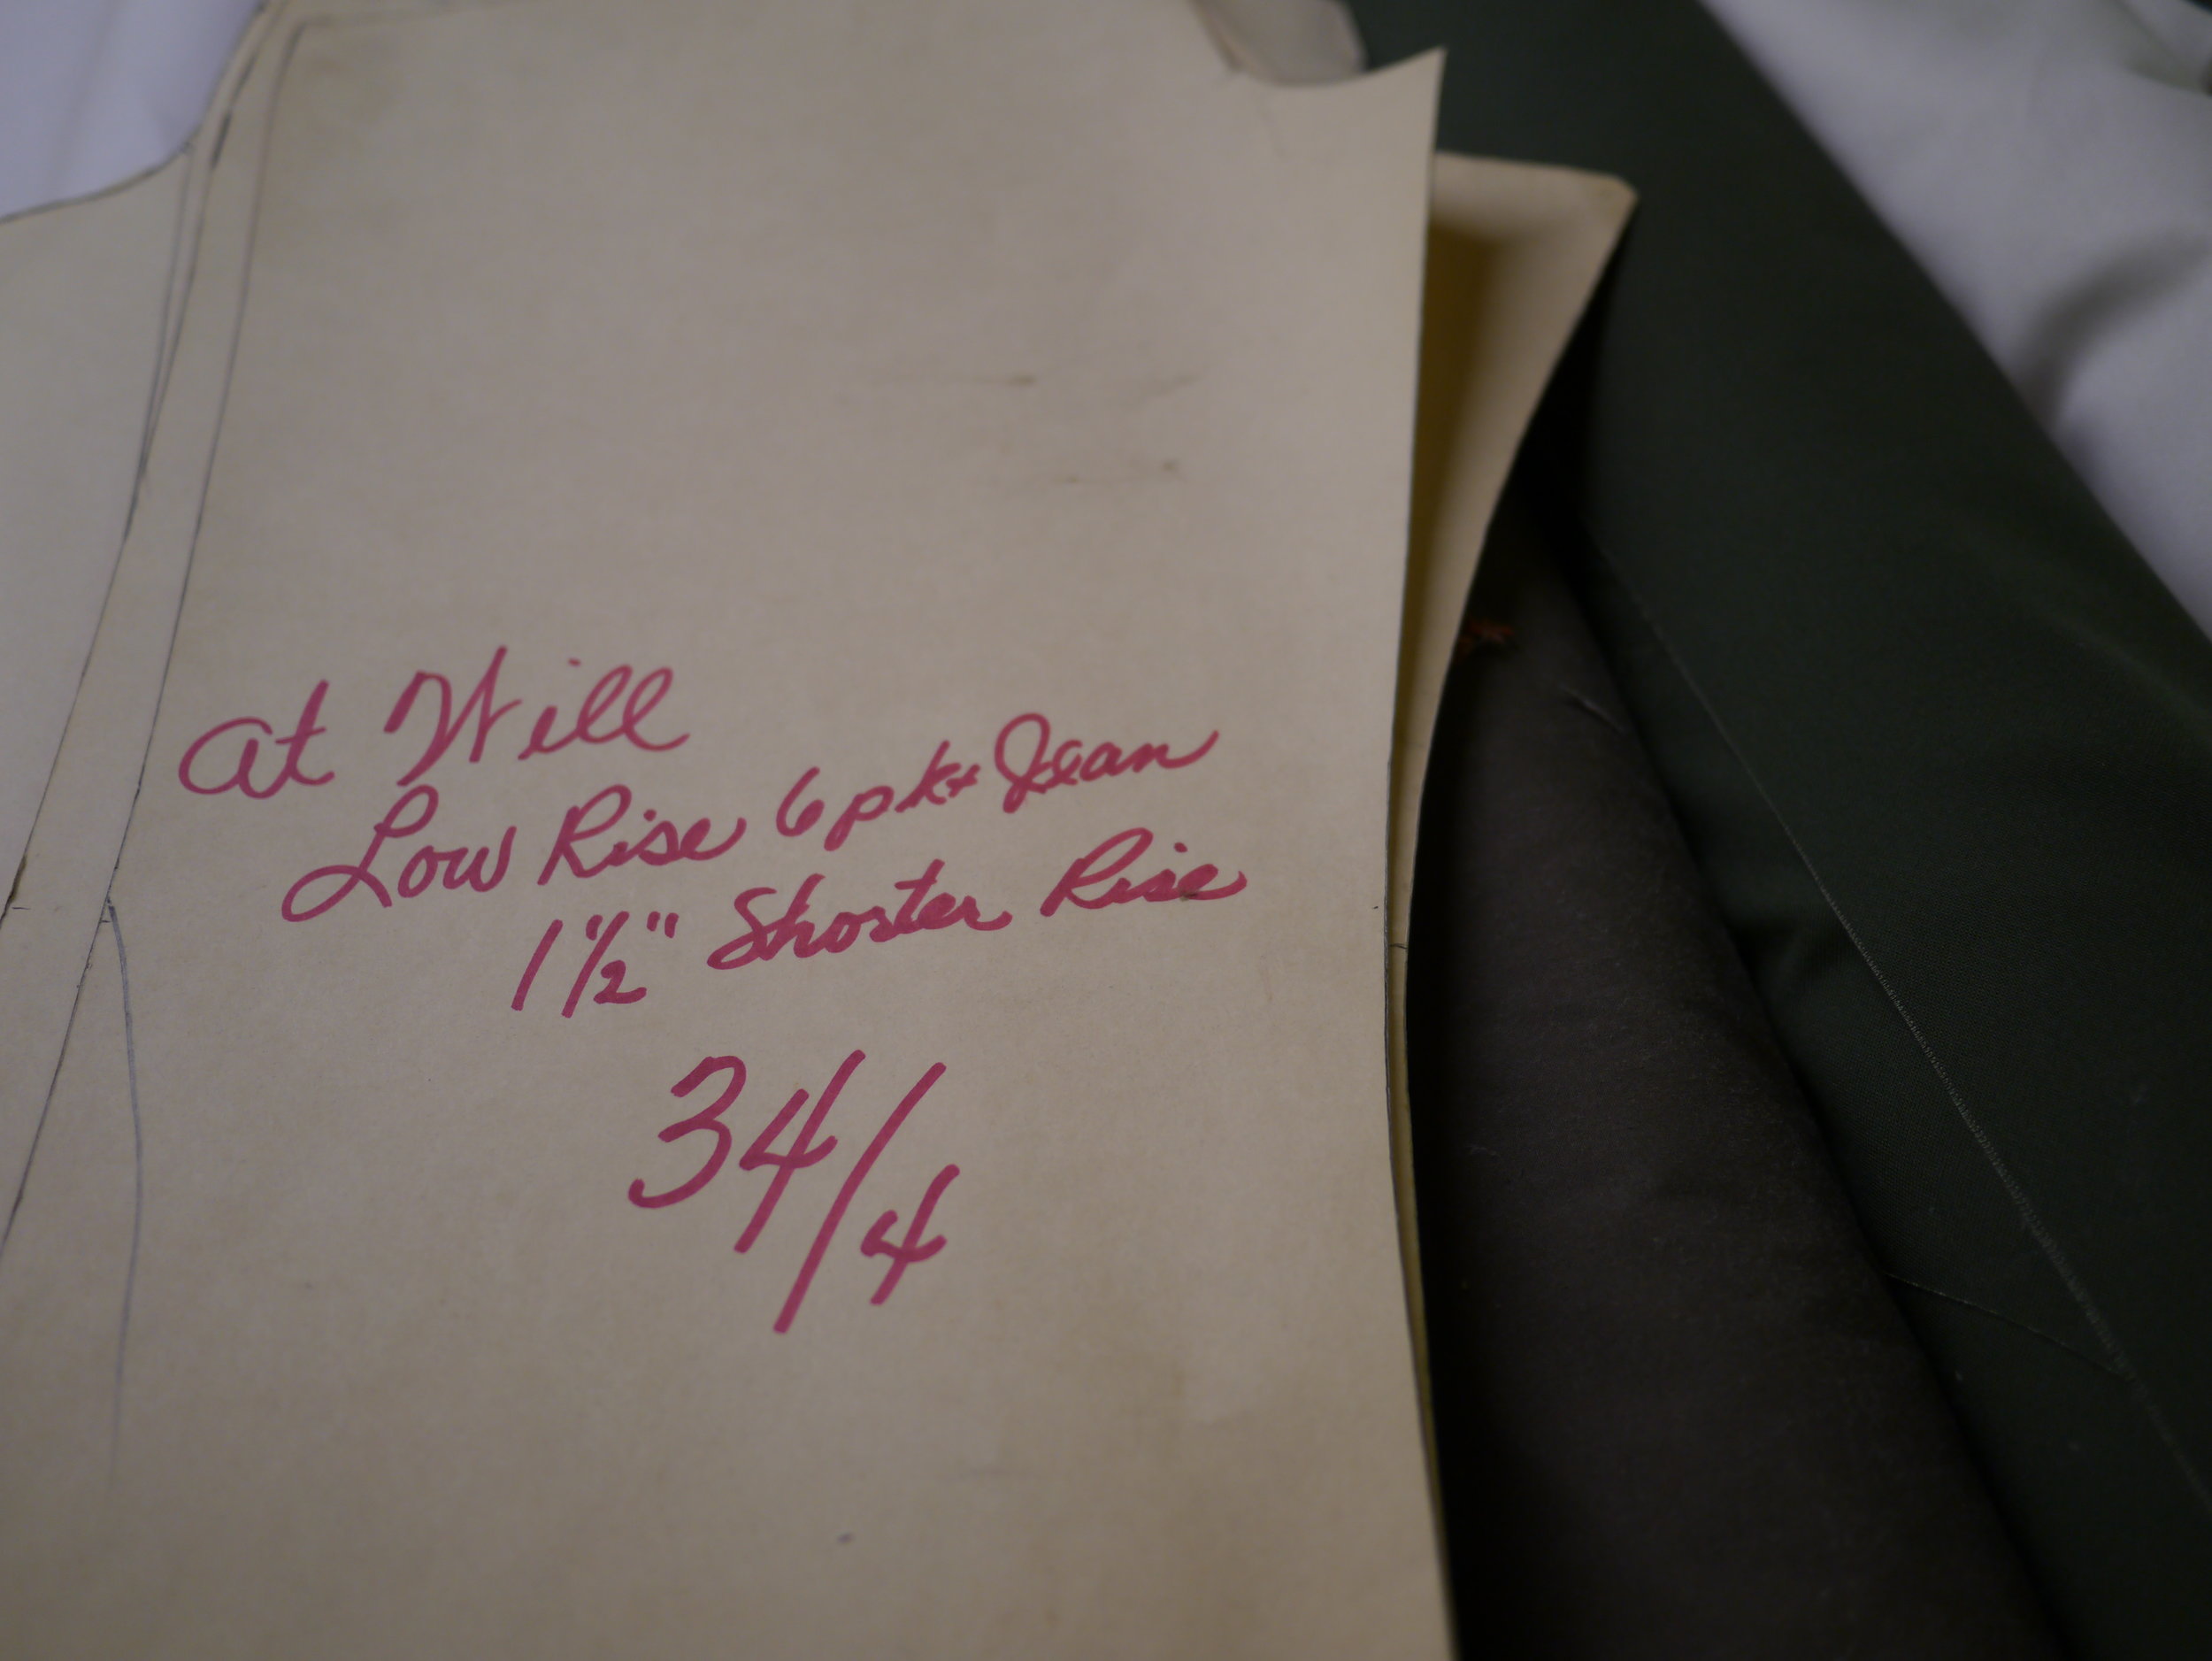 at Will
Low Rise 6 pkt Jean
1 1/2" Shorter Rise
34/4